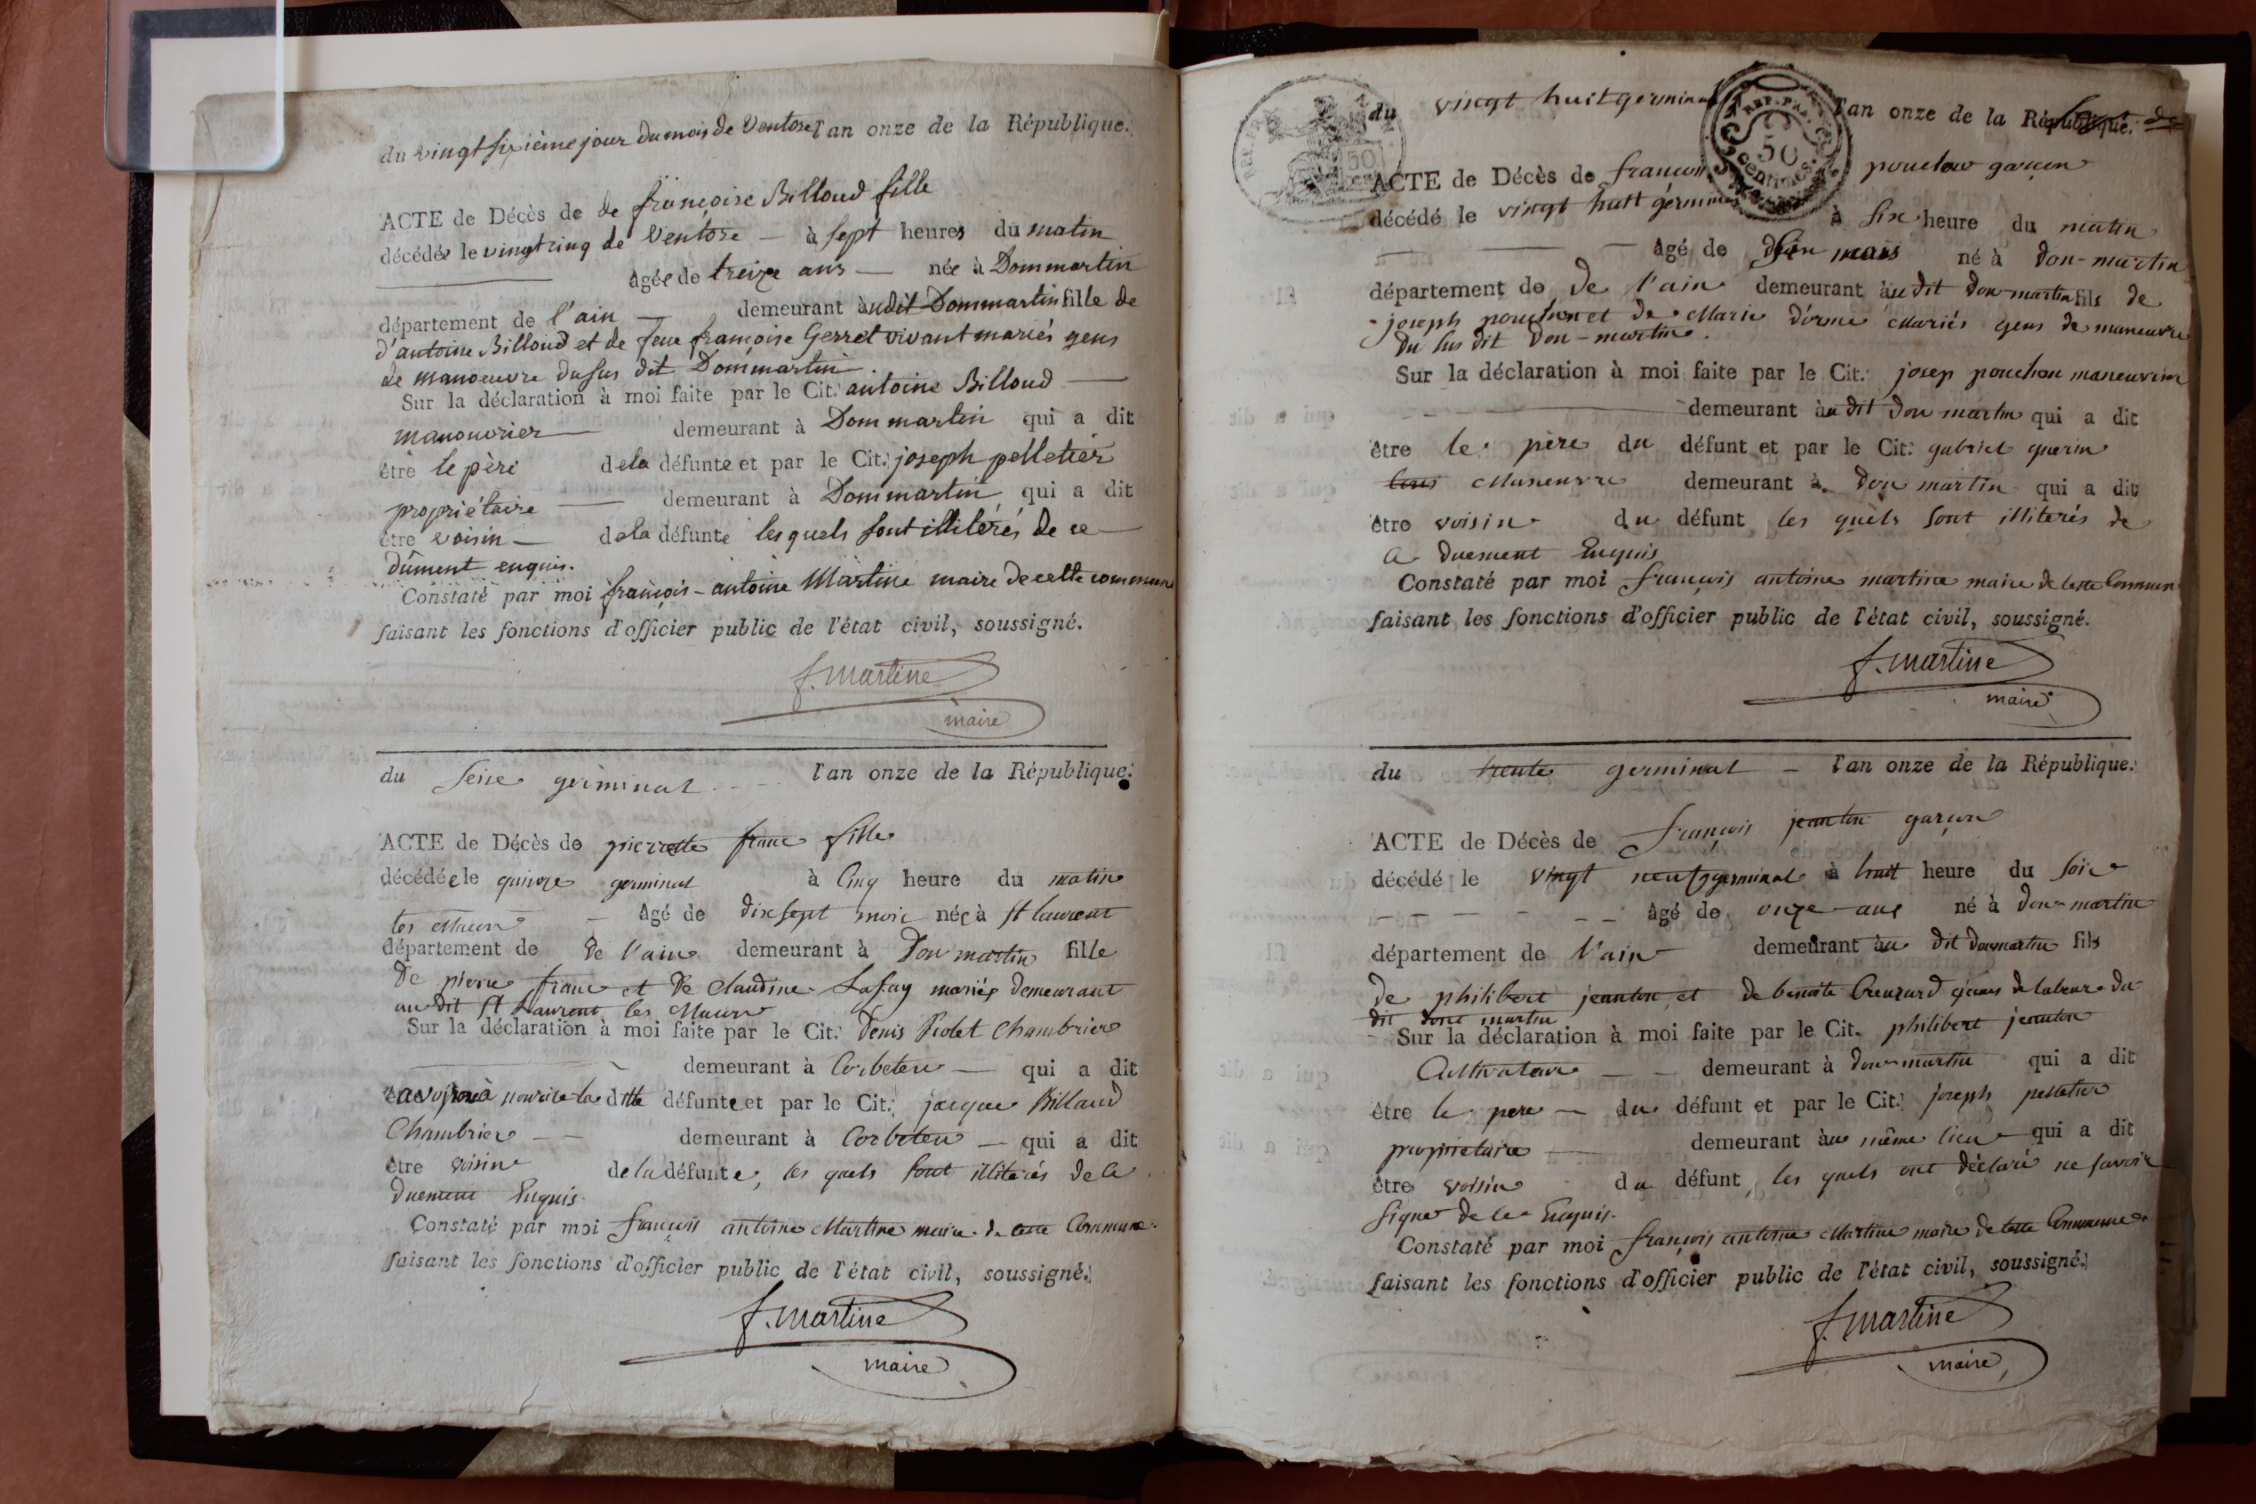 du vingt sixième jour du mois de Ventose l'an onze de la République.
ACTE de Décès de de françoise Billoud fille
décédée le vingt cinq de Ventose — à sept heures du matin
— agée de treize ans — née à Dommartin
département de l'ain — demeurant audit Dommartin fille de
d'antoine Billoud et de feue françoise Gerret vivant mariés gens
de manoeuvre dusus dit Dommartin.
Sur la déclaration à moi faite par le Cit. antoine Billoud —
manouvrier — demeurant à Dommartin qui a dit
être le père de la défunte et par le Cit. joseph pelletier
propriétaire — demeurant à Dommartin qui a dit
être voisin — de la défunte les quels sont illiterés de ce —
dûment enquis.
Constaté par moi françois-antoine Martine maire de cette commune
faisant les fonctions d'officier public de l'état civil, soussigné.
f. martine
maire
du seize germinal l'an onze de la République.
ACTE de Décès de pierrette franc fille
décédée le quinze germinal à Cinq heure du matin
les Macon — agé de dix sept mois née à St laurent
département de de l'ain demeurant à Don martin fille
de pierre franc et de Claudine Lafay mariés demeurant
au dit St Laurent les Macon
Sur la déclaration à moi faite par le Cit. denis Violet Chambrier
— demeurant à Corbeten — qui a dit
nourice la ditte défunte et par le Cit. jacque Billaud
Chambrier — demeurant à Corbeten — qui a dit
être voisin de la défunte, les quels sont illiterés de ce
duement Enquis.
Constaté par moi françois antoine Martine maire de cette Commune
faisant les fonctions d'officier public de l'état civil, soussigné.
f. martine
maire
du vingt huit germinal l'an onze de la République.
REP. FRA. 50 centimes
ACTE de Décès de françois pouchon garçon
décédé le vingt huit germinal à six heure du matin
— agé de mois né à don-martin
département de de l'ain demeurant au dit don martin fils de
joseph pouchon et de Marie dorme Mariés gens de maneuvre
du sus dit Don-martin.
Sur la déclaration à moi faite par le Cit. josep pouchon maneuvrier
— demeurant au dit don martin qui a dit
être le père du défunt et par le Cit. gabriel guerin
Maneuvre demeurant à don martin qui a dit
être voisin du défunt les quels sont illiterés de
ce duement Enquis
Constaté par moi françois antoine martine maire de cette Commune
faisant les fonctions d'officier public de l'état civil, soussigné.
f. martine
maire
du trente germinal — l'an onze de la République.
ACTE de Décès de françois jeanton garçon
décédé le vingt neuf germinal à huit heure du soir
— agé de onze ans né à don-martin
département de l'ain demeurant au dit donmartin fils
de philibert jeanton et de benoite Creuzard gens de labeur du
dit dont martin
Sur la déclaration à moi faite par le Cit. philibert jeanton
Cultivateur — demeurant à don-martin qui a dit
être le pere — du défunt et par le Cit. joseph pelletier
proprietaire — demeurant au même lieu — qui a dit
être voisin du défunt, les quels ont déclaré ne savoir
signer de ce Enquis.
Constaté par moi françois antoine Martine maire de cette Commune
faisant les fonctions d'officier public de l'état civil, soussigné.
f. martine
maire